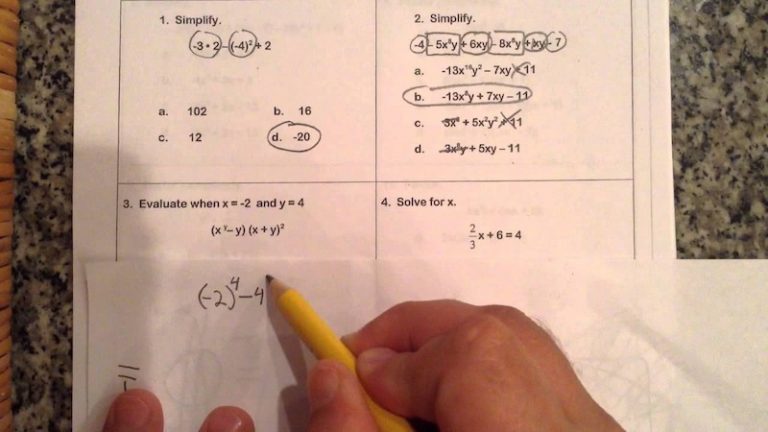 1. Simplify.
-3 • 2 – (-4)² + 2
a. 102
b. 16
c. 12
d. -20
2. Simplify.
-4 – 5x⁸y + 6xy – 8x⁸y + xy – 7
a. -13x¹⁶y² – 7xy – 11
b. -13x⁸y + 7xy – 11
c. 3x⁸ + 5x²y² + 11
d. 3x⁸y + 5xy – 11
3. Evaluate when x = -2 and y = 4
(xʸ – y) (x + y)²
4. Solve for x.
2/3 x + 6 = 4
(-2)⁴ – 4